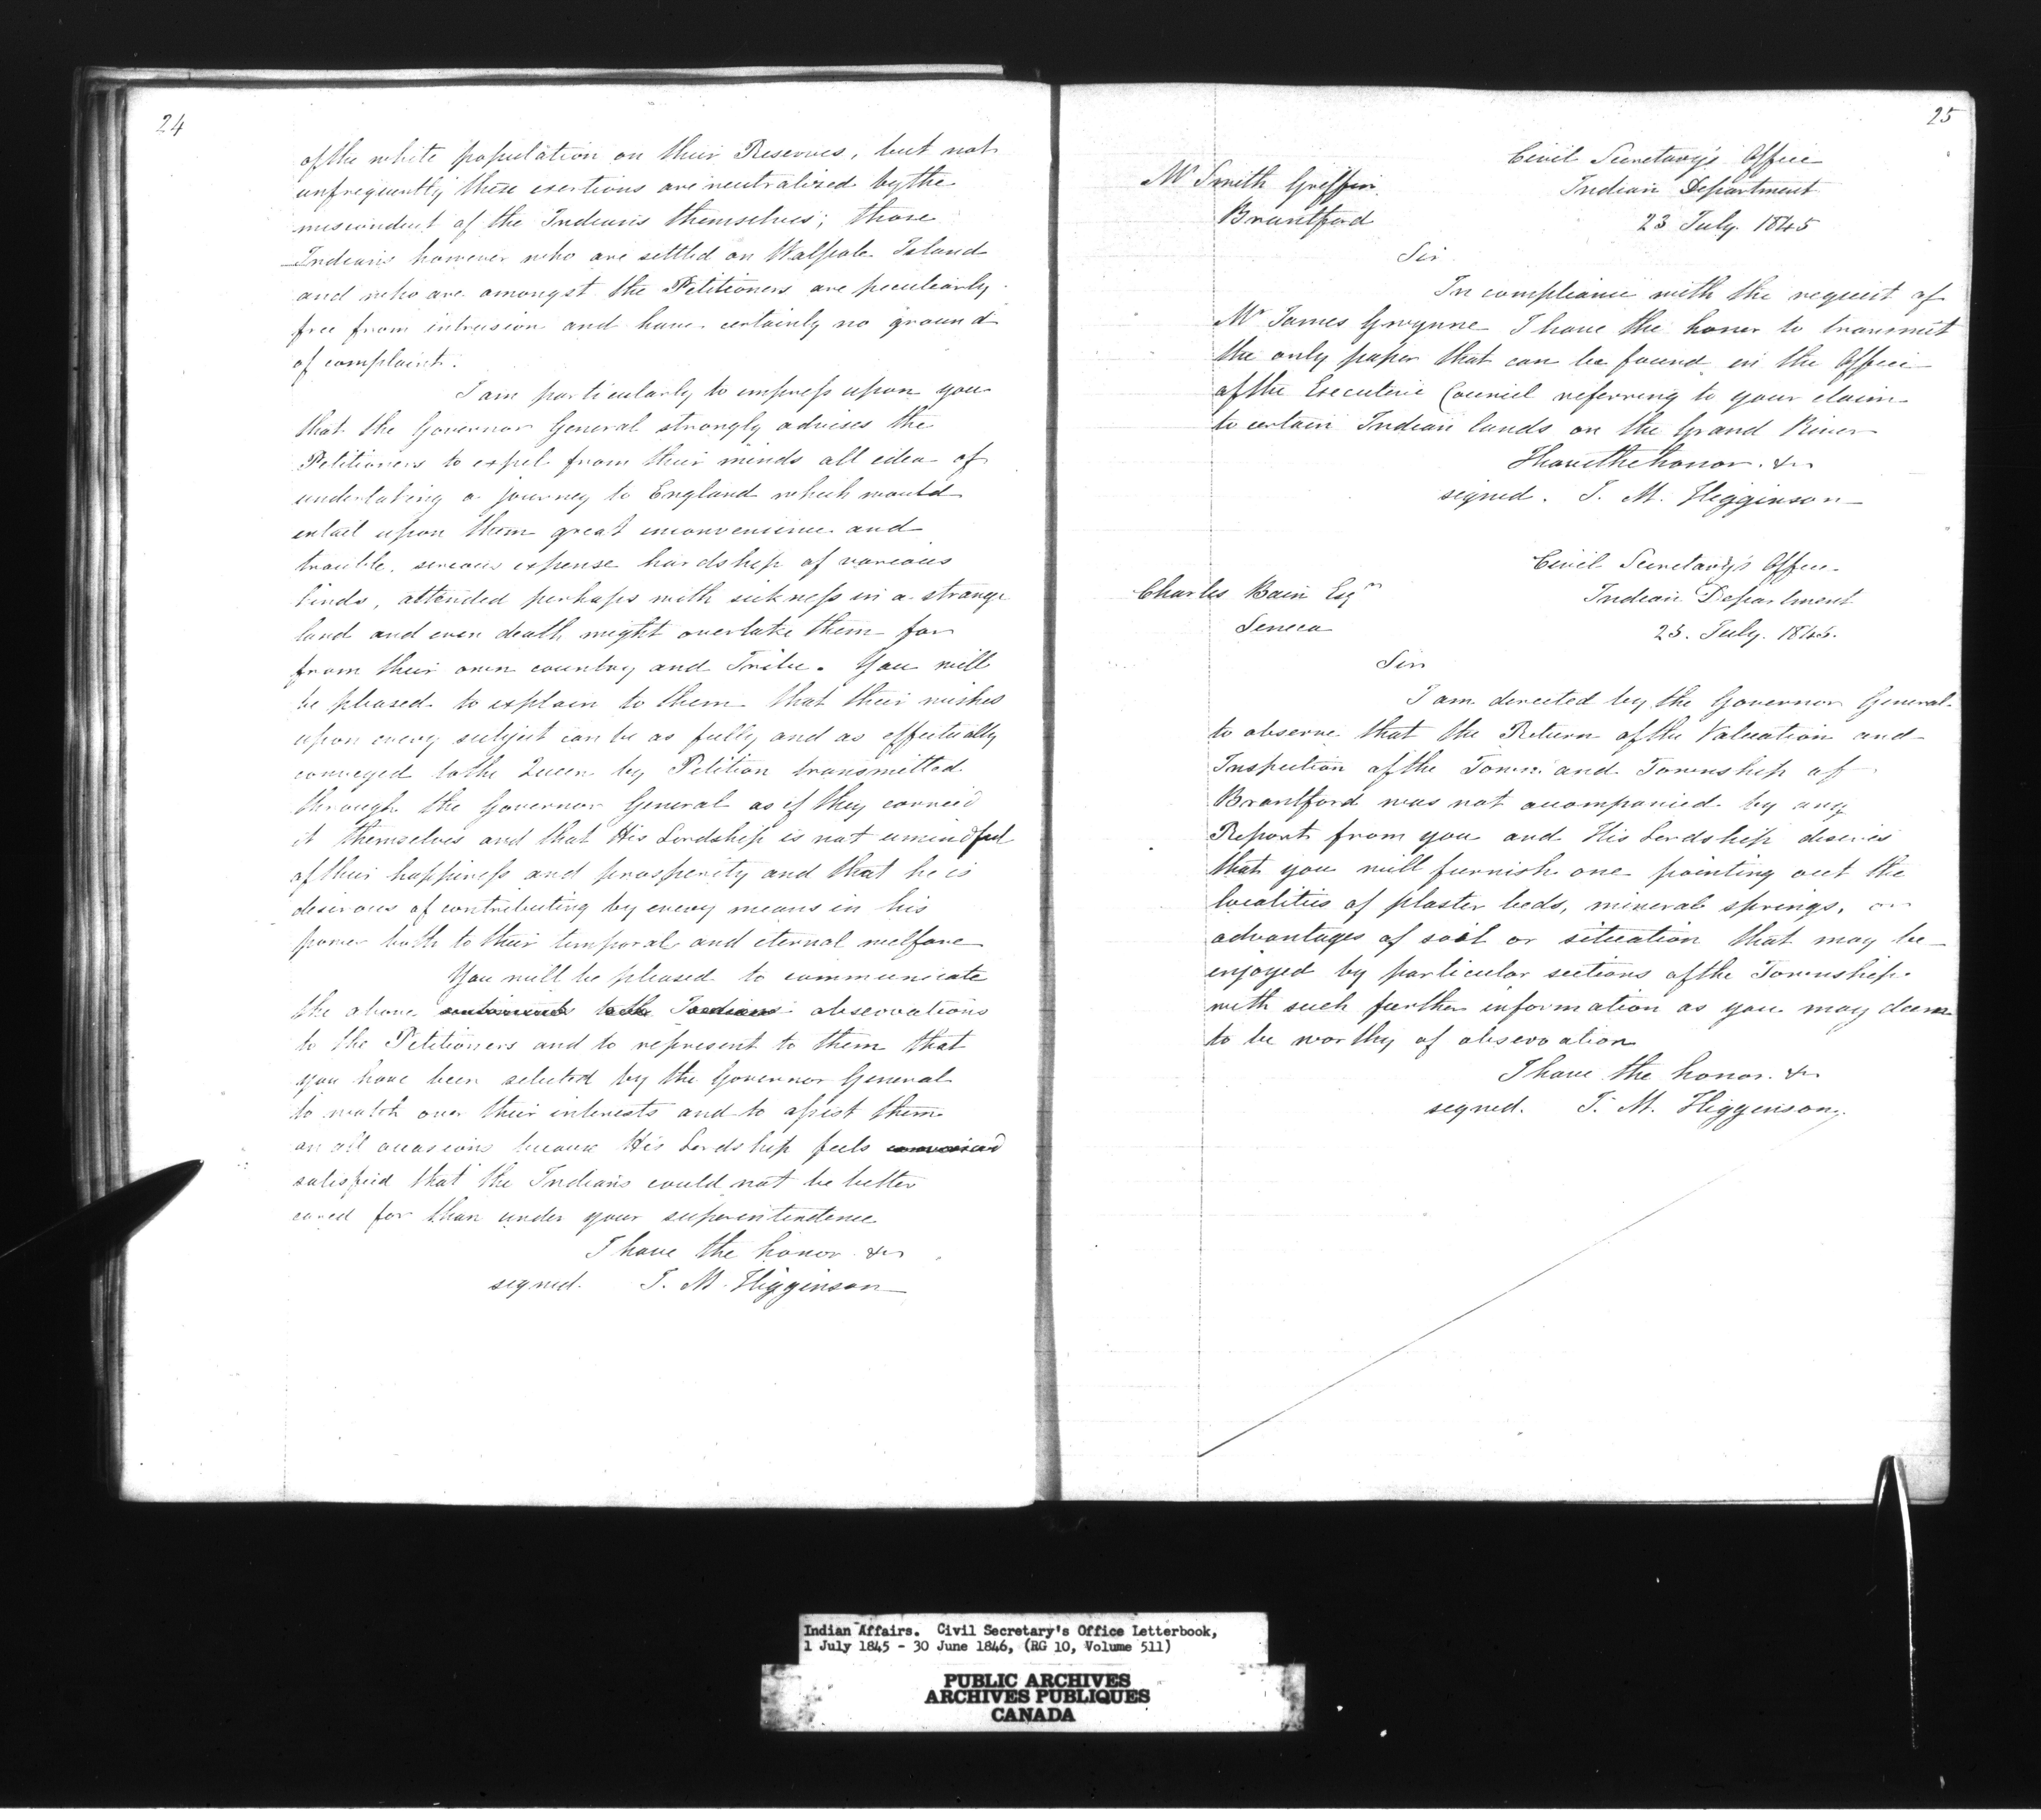 24
of the white population on their Reserves, but not
unfrequently these exertions are neutralized by the
misconduct of the Indians themselves; those
Indians however who are settled on Walpole Island
and who are amongst the Petitioners are peculiarly
free from intrusion and have certainly no ground
of complaint.
I am particularly to impress upon you
that the Governor General strongly advises the
Petitioners to expel from their minds all idea of
undertaking a journey to England which would
entail upon them great inconvenience and
trouble, serious expense hardship of various
kinds, attended perhaps with sickness in a strange
land and even death might overtake them far
from their own country and Tribe. You will
be pleased to explain to them that their wishes
upon every subject can be as fully and as effectually
conveyed to the Queen by Petition transmitted
through the Governor General as if they conveied
it themselves and that His Lordship is not unmindful
of their happiness and prosperity and that he is
desirous of contributing by every means in his
power both to their temporal and eternal welfare
You will be pleased to communicate
the above sentiments to the Indians observations
to the Petitioners and to represent to them that
you have been selected by the Governor General
to watch over their interests and to assist them
on all occasions because His Lordship feels convinced
satisfied that the Indians could not be better
cared for than under your superintendence
I have the honor &c
signed. J. M. Higginson
25
Civil Secretary's Office
Indian Department
23 July 1845
Mr Smith Griffin
Brantford
Sir
In compliance with the request of
Mr James Gwynne I have the honor to transmit
the only paper that can be found in the Office
of the Executive Council referring to your claim
to certain Indian lands on the Grand River
I have the honor &c
signed. J. M. Higginson
Civil Secretary's Office
Indian Department
23. July. 1845.
Charles Bain Esqre
Seneca
Sir
I am directed by the Governor General
to observe that the Return of the Valuation and
Inspection of the Town and Township of
Brantford was not accompanied by any
Report from you and His Lordship desires
that you will furnish one pointing out the
localities of plaster beds, mineral springs, or
advantages of soil or situation that may be
enjoyed by particular sections of the Township
with such further information as you may deem
to be worthy of observation
I have the honor &c
signed. J. M. Higginson
Indian Affairs. Civil Secretary's Office Letterbook,
1 July 1845 - 30 June 1846, (RG 10, Volume 511)
PUBLIC ARCHIVES
ARCHIVES PUBLIQUES
CANADA